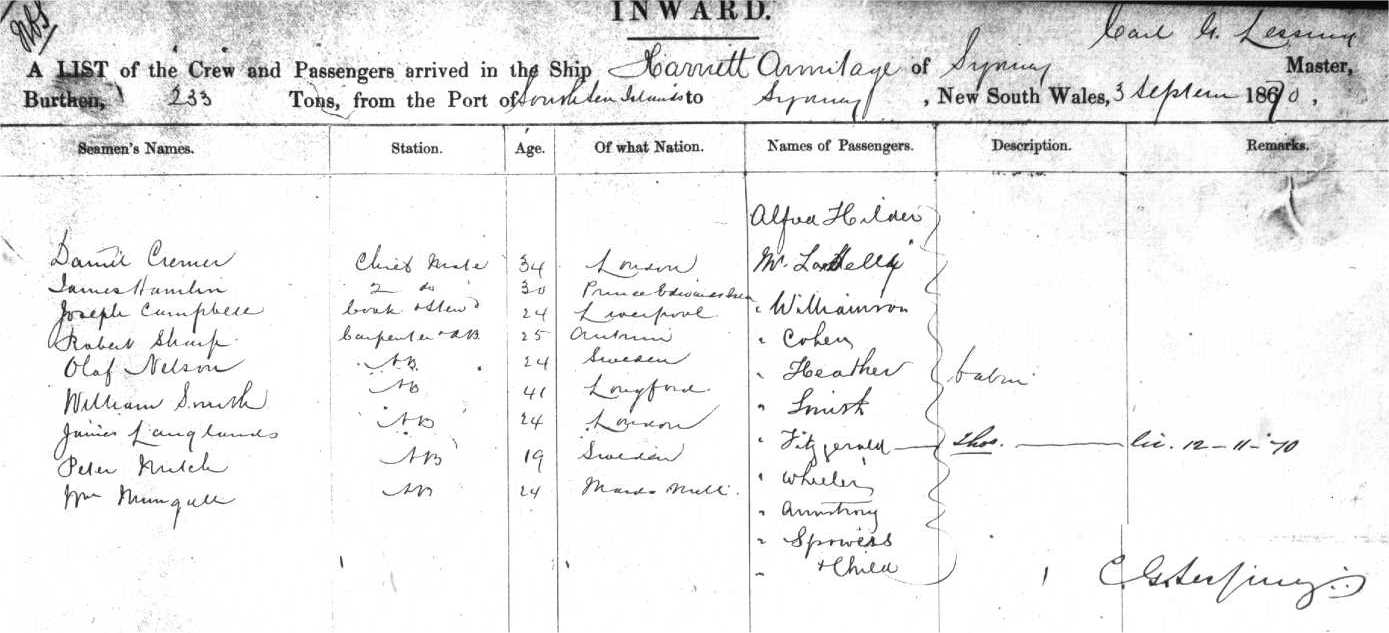 INWARD.
Carl G. Lessing
A LIST of the Crew and Passengers arrived in the Ship Harriett Armitage of Sydney Master,
Burthen, 233 Tons, from the Port of South Sea Islands to Sydney, New South Wales, 3 Septem 1870,
Seamen's Names. Station. Age. Of what Nation. Names of Passengers. Description. Remarks.
Alfred Hilder
Daniel Cremer Chief Mate 34 London Mr.
James Hamlin 2 do 30 Prince Edwards
Joseph Campbell Cook & Stewd 24 Liverpool " Williamson
Robert Sharp Carpenter & AB 25 Antrim " Cohen
Olaf Nelson AB 24 Sweden " Heather Cabin
William Smith AB 41 Longford " Smith
James Langlands AB 24 London " Fitzgerald — Thos. — lic. 12-11-70
Peter AB 19 Sweden " Wheeler
Wm Mungall AB 24 " Armstrong
" Spowers
" & Child
C. G. Lessing